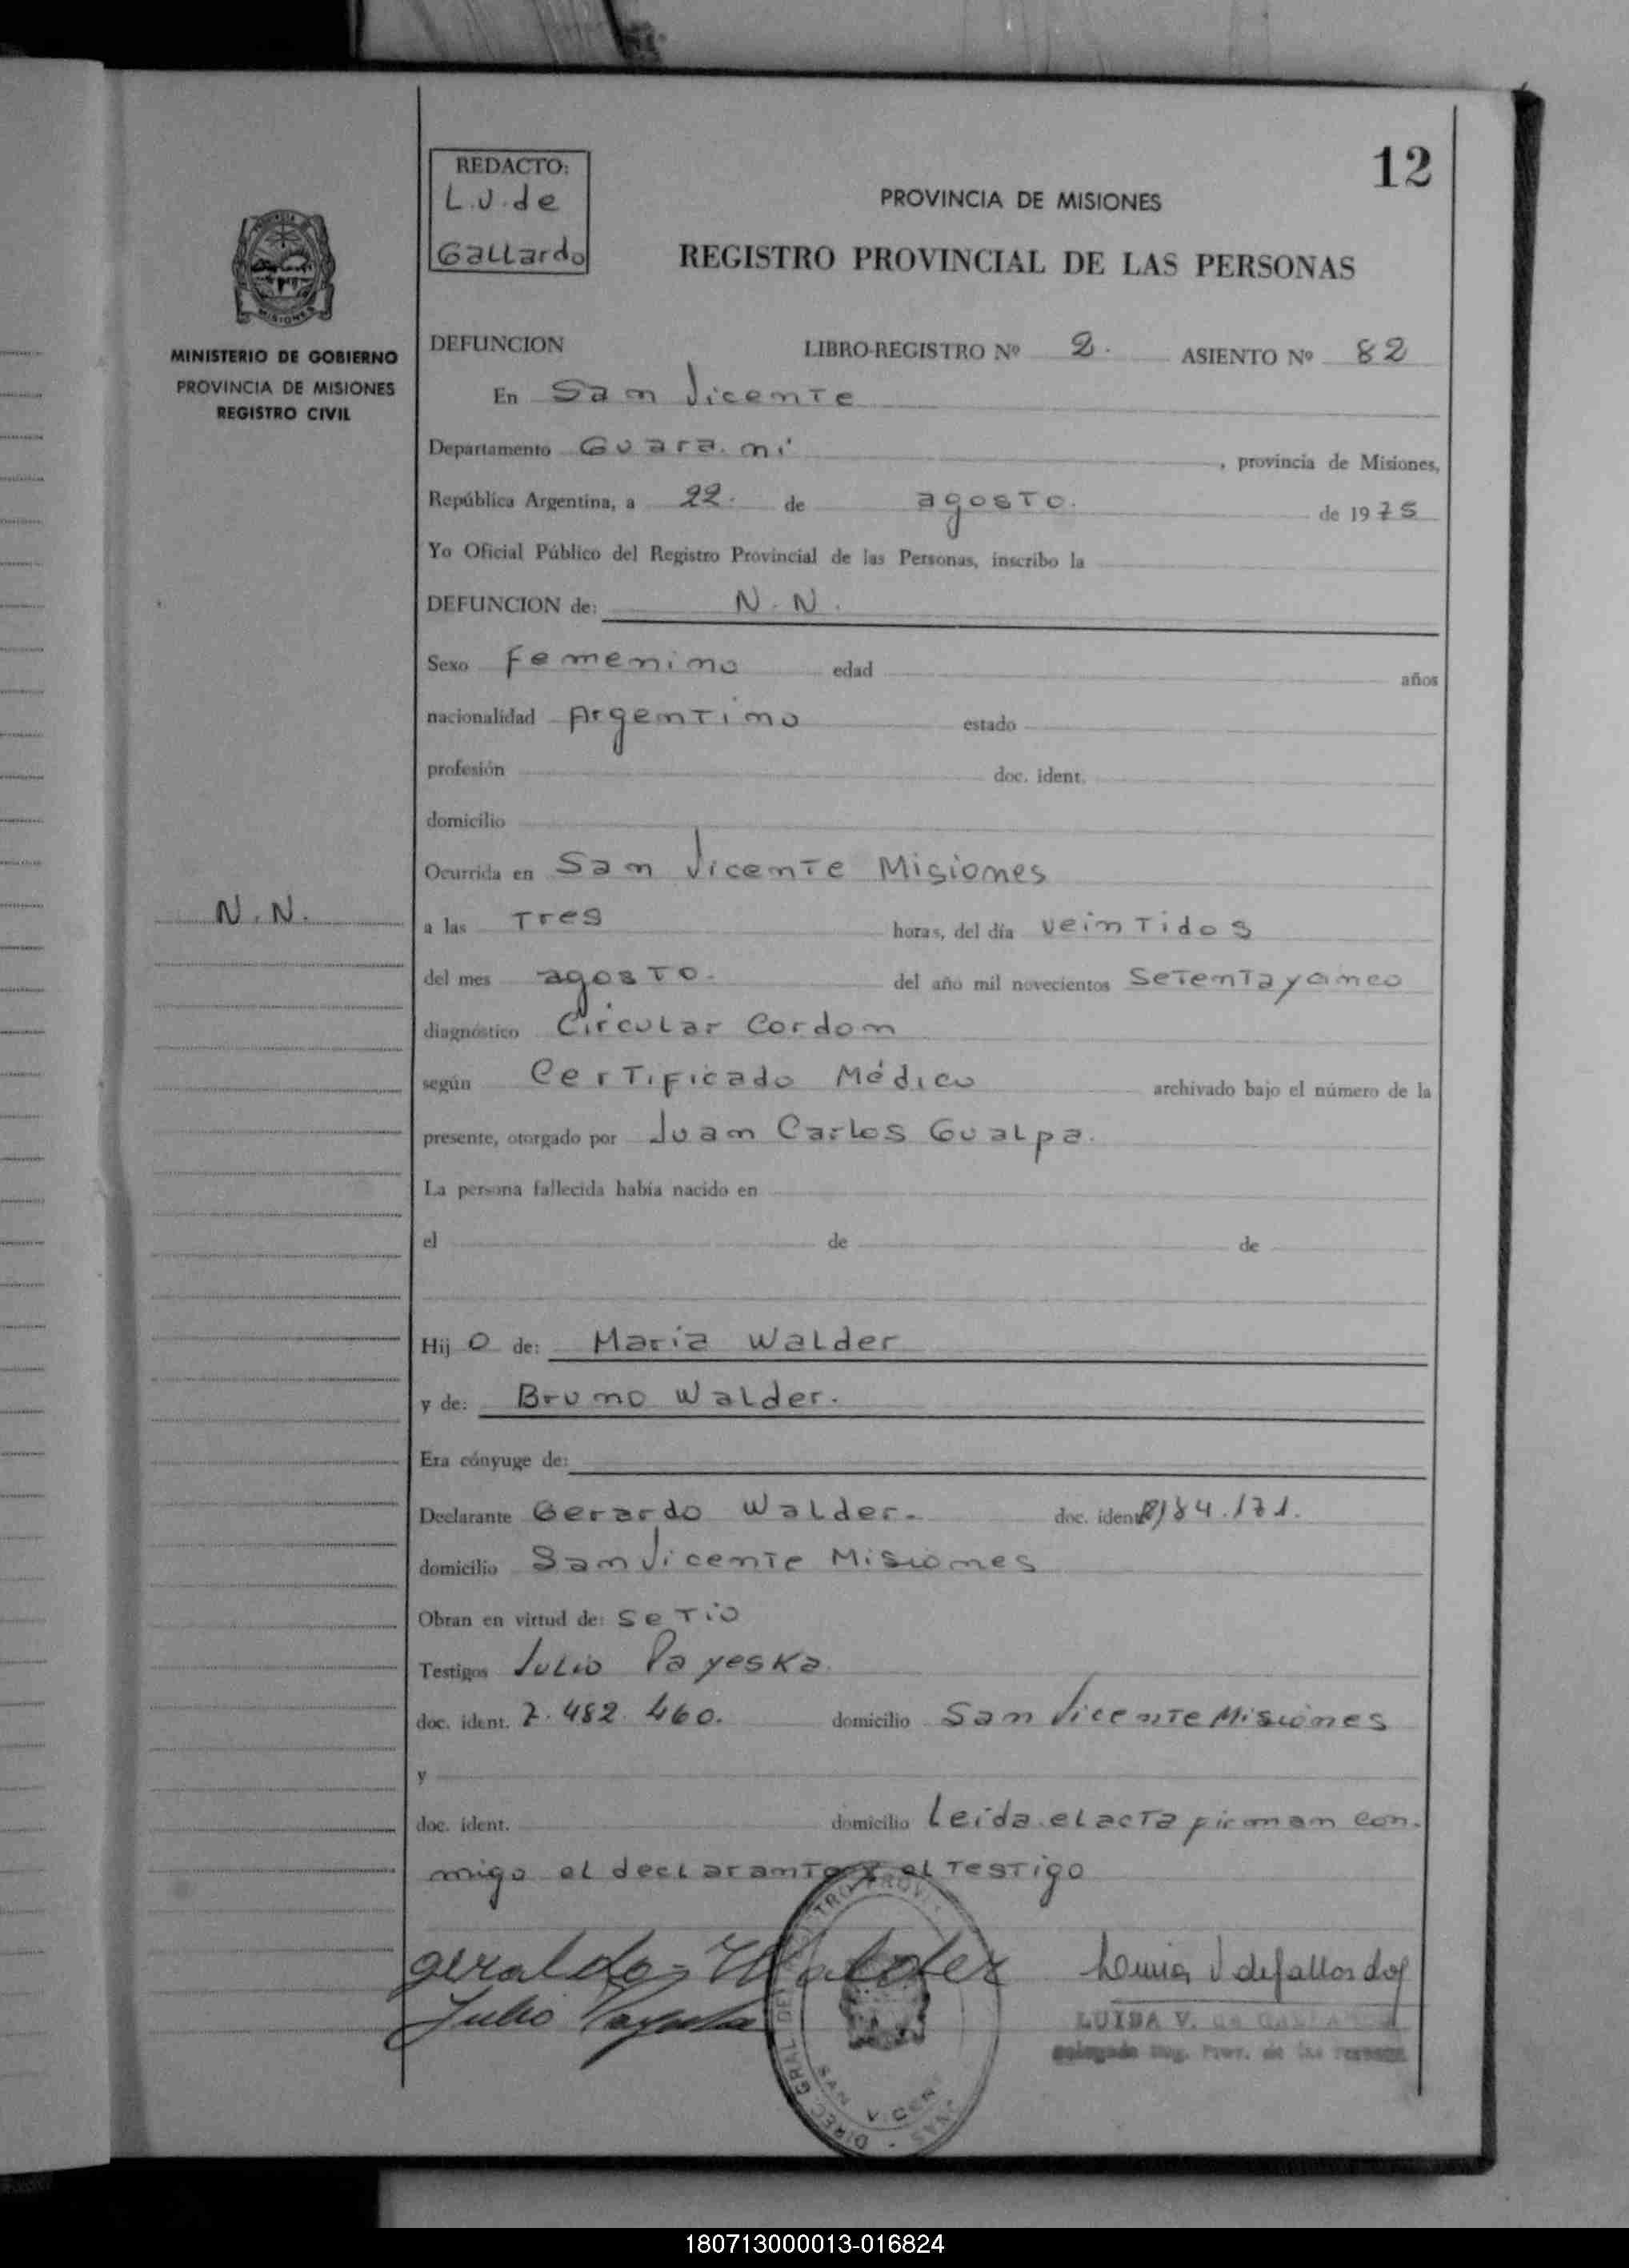 12
REDACTO:
L.V. de
Gallardo
PROVINCIA DE MISIONES
REGISTRO PROVINCIAL DE LAS PERSONAS
MINISTERIO DE GOBIERNO
PROVINCIA DE MISIONES
REGISTRO CIVIL
DEFUNCION LIBRO-REGISTRO Nº 2. ASIENTO Nº 82
En San Vicente
Departamento Guara.ni , provincia de Misiones,
República Argentina, a 22. de agosto. de 1975
Yo Oficial Público del Registro Provincial de las Personas, inscribo la
DEFUNCION de: N.N.
Sexo Femenino edad años
nacionalidad Argentino estado
profesión doc. ident.
domicilio
Ocurrida en San Vicente Misiones
N.N.
a las Tres horas, del día veintidos
del mes agosto. del año mil novecientos setentaycinco
diagnóstico Circular Cordon
según Certificado Médico archivado bajo el número de la
presente, otorgado por Juan Carlos Gualpa.
La persona fallecida había nacido en
el de de
Hijo de: Maria Walder
y de: Bruno Walder.
Era cónyuge de:
Declarante Gerardo Walder. doc. ident.
domicilio San Vicente Misiones
Obran en virtud de: Se Tio
Testigos Julio Payeska
doc. ident. 7.482.460. domicilio San Vicente Misiones
y
doc. ident. domicilio Leida el acta firman con.
migo el declarante y el testigo
geraldo Walder
Julio Payeska
LUISA V. de
Delegada Reg. Prov. de las Personas
DIREC. GRAL DEL
SAN VICEN
180713000013-016824